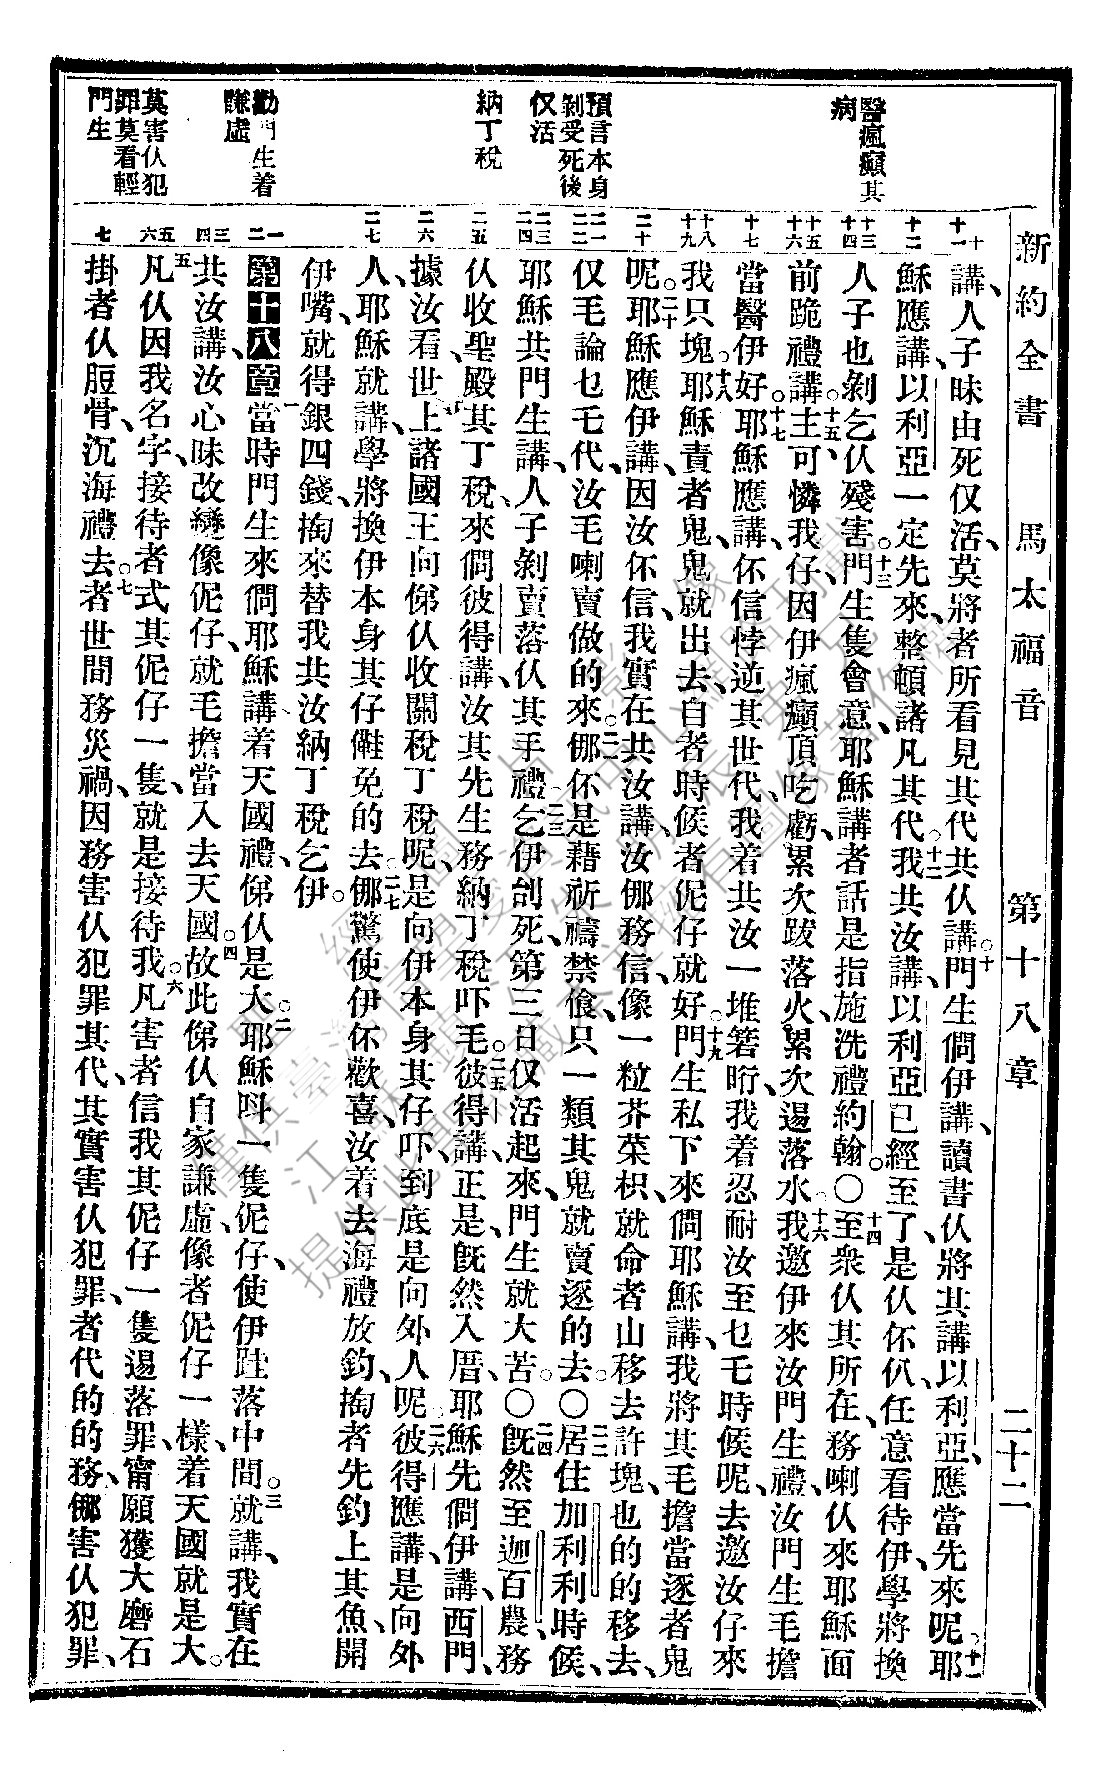 新約全書 馬太福音 第十八章 二十二
醫瘋癲其
病
預言本身
剝受死後
仅活
納丁稅
勸門生着
謙虛
莫害仅犯
罪莫看輕
門生
十 十一 十二 十三 十四 十五 十六 十七 十八 十九 二十 二一 二二 二三 二四 二五 二六 二七 一 二 三 四 五 六 七
講、人子昧由死仅活、莫將者所看見其代共仅講。十門生僩伊講、讀書仅將其講以利亞、應當先來呢。十一耶
穌應講、以利亞一定先來、整頓諸凡其代。十二我共汝講、以利亞已經至了、是仅伓仈、任意看待伊、學將換
人子也剝乞仅殘害。十三門生隻會意、耶穌講者話是指施洗禮約翰。〇十四至衆仅其所在、務喇仅來耶穌面
前跪禮講、十五主可憐我仔、因伊瘋癲頂吃虧、累次跋落火、累次逿落水、十六我邀伊來汝門生禮、汝門生毛擔
當醫伊好。十七耶穌應講、伓信悖逆其世代、我着共汝一堆箬㫄、我着忍耐汝至乜乇時候呢、去邀汝仔來
我只塊。十八耶穌責者鬼、鬼就出去、自者時候者伲仔就好。十九門生私下來僩耶穌講、我將其毛擔當逐者鬼
呢。二十耶穌應伊講、因汝伓信、我實在共汝講、汝㑚務信、像一粒芥菜枳、就命者山移去許塊、也的的移去、
仅毛論乜乇代、汝毛喇賣做的來。二一㑚伓是藉祈禱禁飧、只一類其鬼就賣逐的去。〇二二居住加利利時候、
耶穌共門生講、人子剝賣落仅其手禮、二三乞伊刣死、第三日仅活起來、門生就大苦。〇二四既然至迦百農、務
仅收聖殿其丁稅、來僩彼得講、汝其先生務納丁稅吓毛。二五彼得講、正是、既然入厝、耶穌先僩伊講、西門、
據汝看、世上諸國王、向俤仅收關稅丁稅呢、是向伊本身其仔吓、到底是向外人呢。二六彼得應講、是向外
人、耶穌就講、學將換伊本身其仔、㒤免的去。二七㑚驚使伊伓歡喜、汝着去海禮放釣、掏者先釣上其魚、開
伊嘴、就得銀四錢、掏來替我共汝納丁稅乞伊。
第十八章 一當時門生來僩耶穌講、着天國禮、俤仅是大。二耶穌呌一隻伲仔、使伊跬落中間。三就講、我實在
共汝講、汝心昧改變像伲仔、就毛擔當入去天國。四故此俤仅自家謙虛、像者伲仔一樣、着天國就是大。
五凡仅因我名字、接待者式其伲仔一隻、就是接待我。六凡害者信我其伲仔一隻逿落罪、甯願獲大磨石
掛者仅脰骨、沉海禮去。七者世間務災禍、因務害仅犯罪其代、其實害仅犯罪、者代的的務、㑚害仅犯罪、